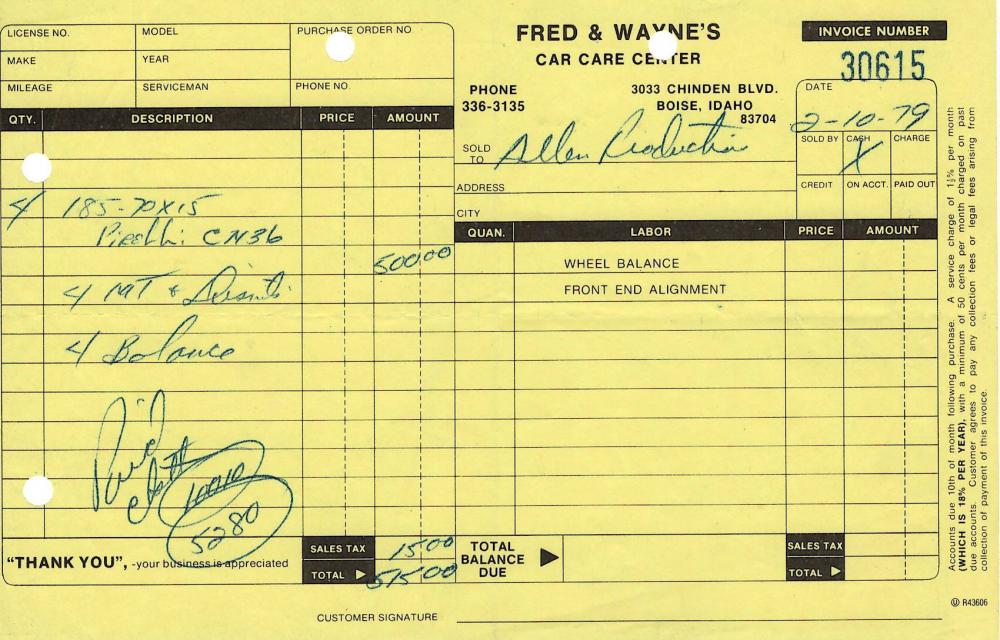 LICENSE NO. MODEL PURCHASE ORDER NO
MAKE YEAR
MILEAGE SERVICEMAN PHONE NO.
FRED & WAYNE'S
CAR CARE CENTER
PHONE
336-3135
3033 CHINDEN BLVD.
BOISE, IDAHO
83704
INVOICE NUMBER
30615
DATE
2-10-79
SOLD BY CASH CHARGE
X
CREDIT ON ACCT. PAID OUT
SOLD TO Allen Production
ADDRESS
CITY
QTY. DESCRIPTION PRICE AMOUNT
4 185-70X15
Pirelli CN36
500 00
4 MT & Dismts.
4 Balance
Paid
5280
"THANK YOU", -your business is appreciated
SALES TAX 15 00
TOTAL 515 00
QUAN. LABOR PRICE AMOUNT
WHEEL BALANCE
FRONT END ALIGNMENT
TOTAL BALANCE DUE
SALES TAX
TOTAL
CUSTOMER SIGNATURE
Accounts due 10th of month following purchase. A service charge of 1½% per month
(WHICH IS 18% PER YEAR), with a minimum of 50 cents per month charged on past
due accounts. Customer agrees to pay any collection fees or legal fees arising from
collection of payment of this invoice.
R43606